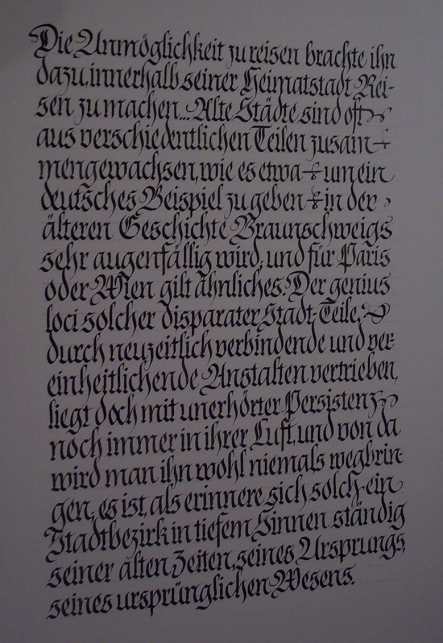 Die Unmöglichkeit zu reisen brachte ihn
dazu, innerhalb seiner Heimatstadt Rei-
sen zu machen... Alte Städte sind oft
aus verschiedentlichen Teilen zusam-
mengewachsen, wie es etwa um ein
deutsches Beispiel zu geben in der
älteren Geschichte Braunschweigs
sehr augenfällig wird; und für Paris
oder Wien gilt ähnliches. Der genius
loci solcher disparater Stadt-Teile,
durch neuzeitlich verbindende und ver-
einheitlichende Anstalten vertrieben,
liegt doch mit unerhörter Persistenz
noch immer in ihrer Luft, und von da
wird man ihn wohl niemals wegbrin-
gen, es ist, als erinnere sich solch ein
Stadtbezirk in tiefem Sinnen ständig
seiner alten Zeiten, seines Ursprungs,
seines ursprünglichen Wesens.